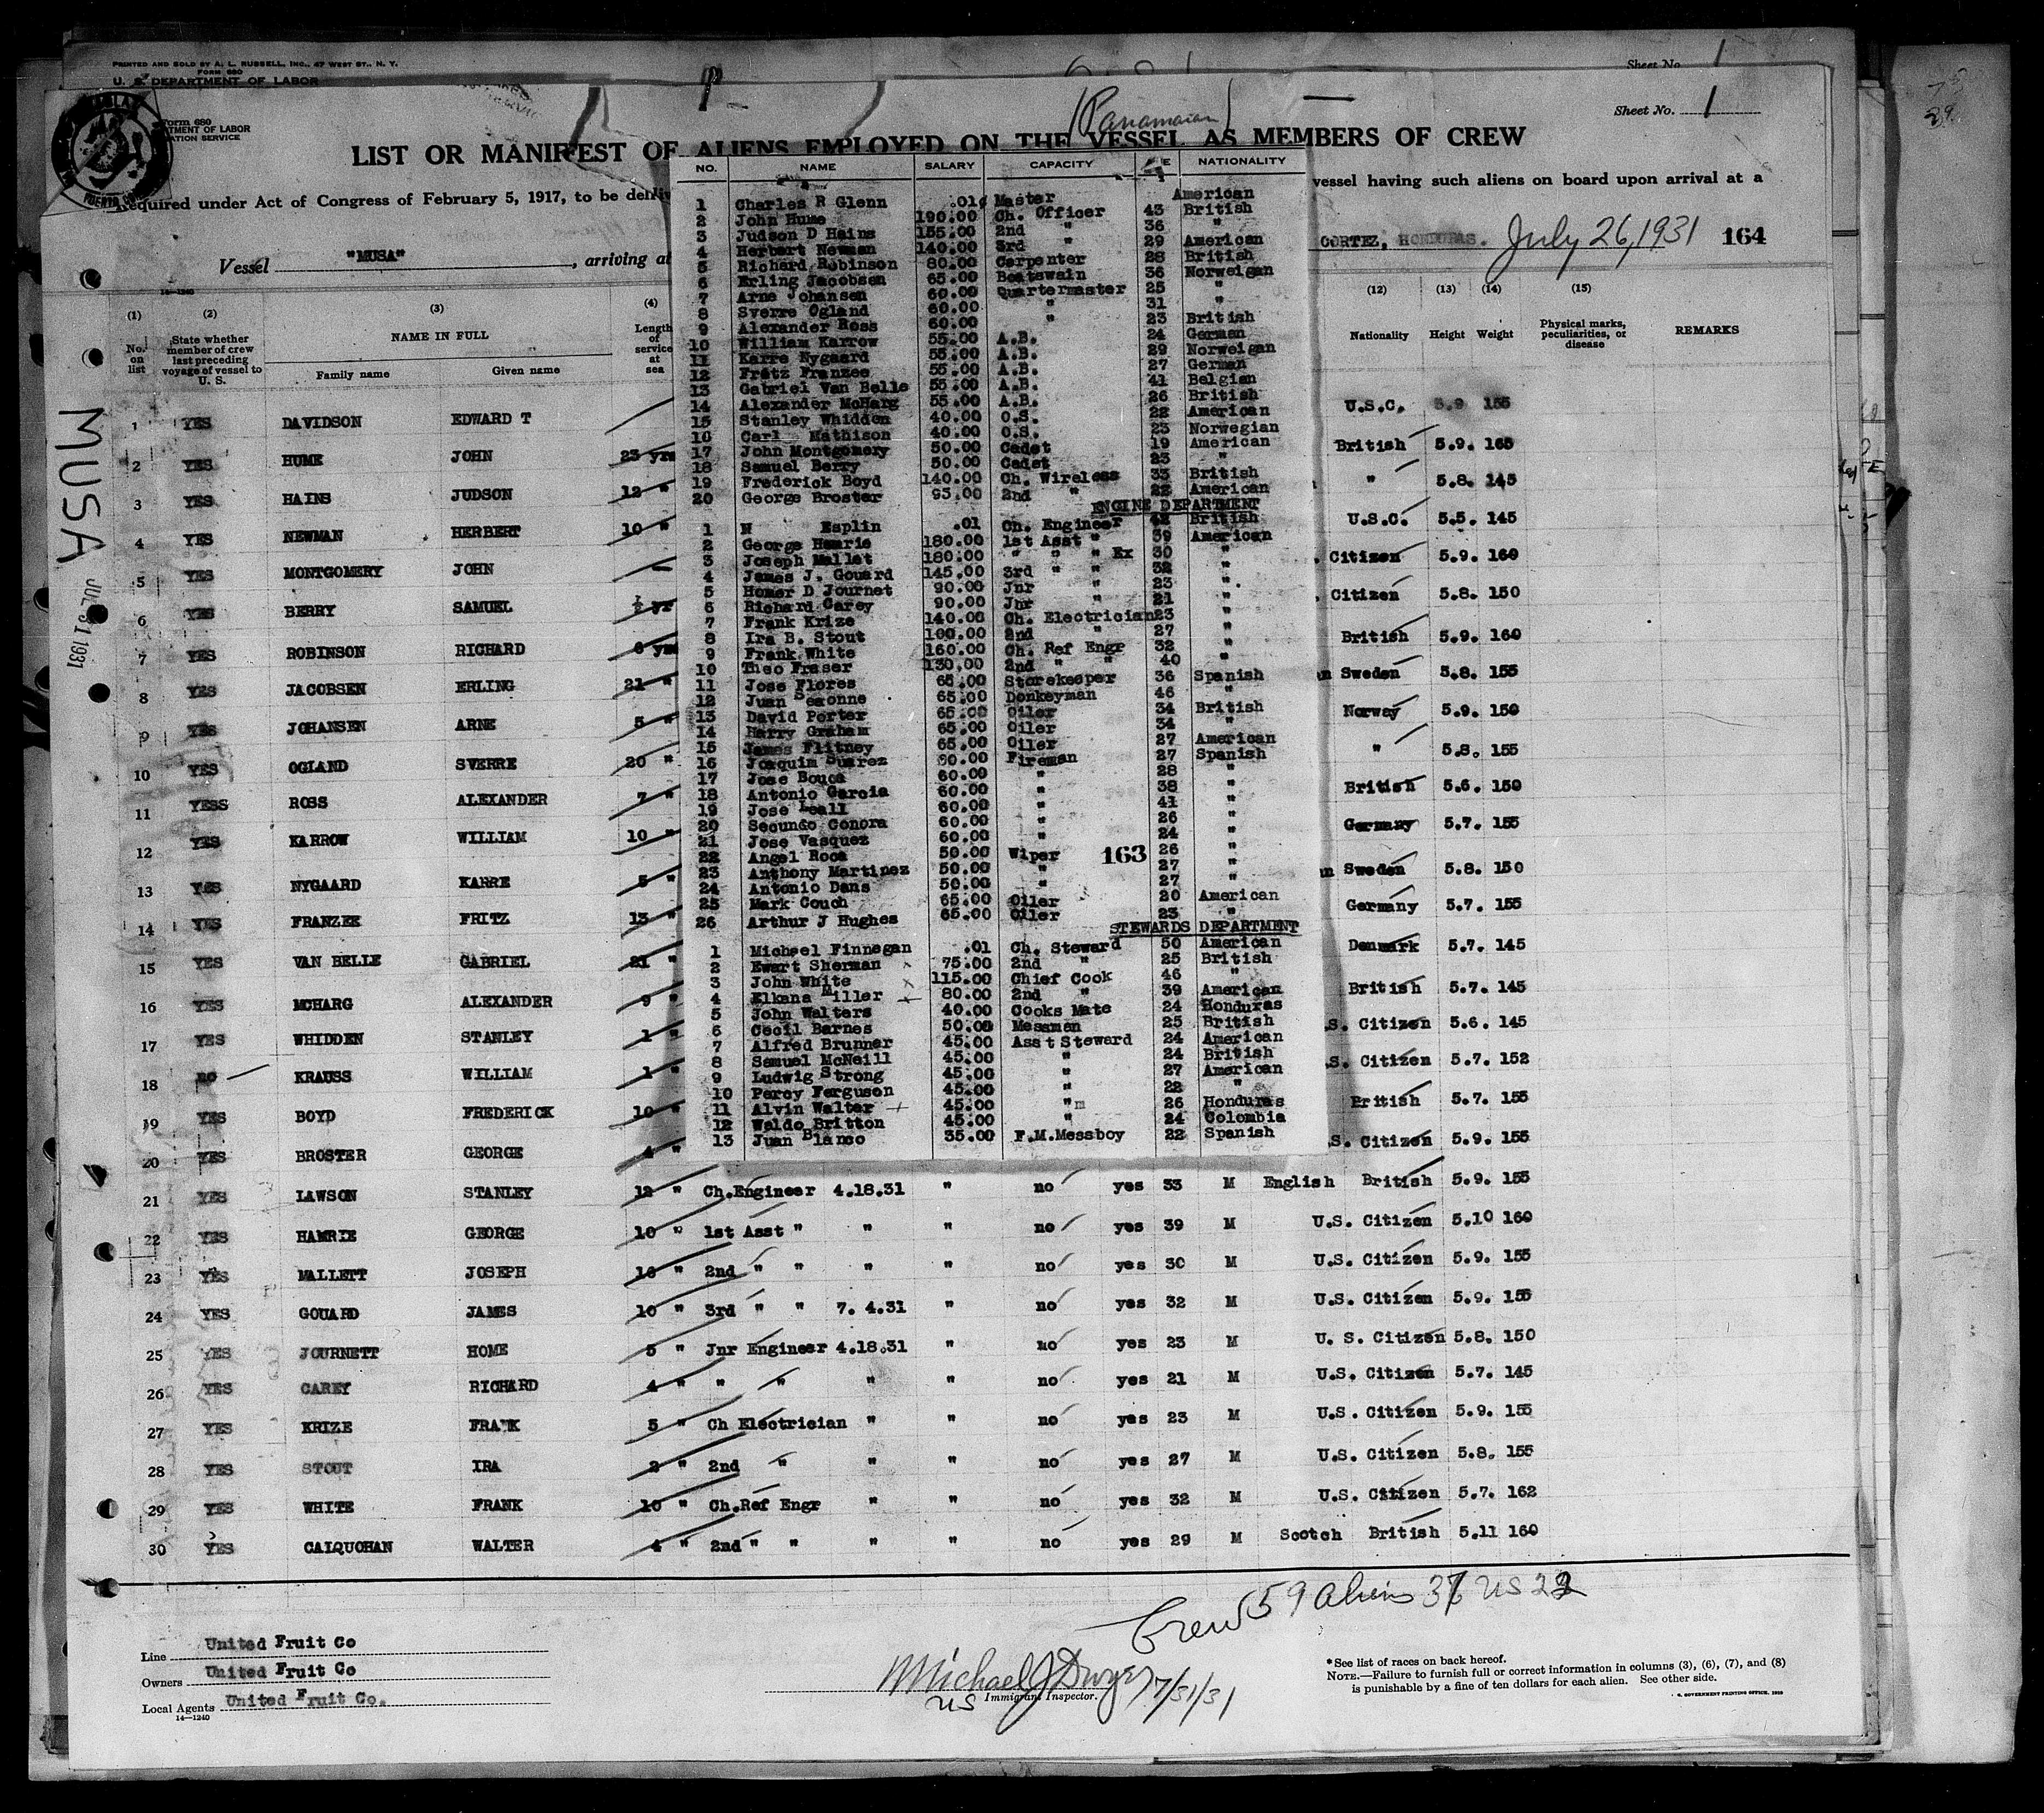 PRINTED AND SOLD BY A. L. RUSSELL, INC., 47 WEST ST., N. Y.
FORM 680
U. S. DEPARTMENT OF LABOR
Sheet No. 1
Form 680
TMENT OF LABOR
ATION SERVICE
(Panamaian)
Sheet No. 1
LIST OR MANIFEST OF ALIENS EMPLOYED ON THE VESSEL AS MEMBERS OF CREW
Required under Act of Congress of February 5, 1917, to be deliv
vessel having such aliens on board upon arrival at a
Vessel "MUSA", arriving at
CORTEZ, HONDURAS. July 26, 1931 164
MUSA
JUL 31 1931
(1) (2) (3) (4) (12) (13) (14) (15)
No. on list
State whether member of crew last preceding voyage of vessel to U. S.
NAME IN FULL
Family name Given name
Length of service at sea
Nationality Height Weight
Physical marks, peculiarities, or disease
REMARKS
1 YES DAVIDSON EDWARD T U.S.C. 5.9 155
2 YES HUME JOHN 23 yrs British 5.9. 165
3 YES HAINS JUDSON 12 " " 5.8. 145
4 YES NEWMAN HERBERT 10 " U.S.C. 5.5. 145
5 YES MONTGOMERY JOHN Citizen 5.9. 160
6 YES BERRY SAMUEL ½ yr Citizen 5.8. 150
7 YES ROBINSON RICHARD 6 yrs British 5.9. 160
8 YES JACOBSEN ERLING 21 " n Sweden 5.8. 155
9 YES JOHANSEN ARNE 5 " Norway 5.9. 150
10 YES OGLAND SVERRE 20 " " 5.8. 155
11 YESS ROSS ALEXANDER 7 " British 5.6. 150
12 YES KARROW WILLIAM 10 " Germany 5.7. 155
13 YES NYGAARD KARRE 5 " n Sweden 5.8. 150
14 YES FRANZEE FRITZ 13 " Germany 5.7. 155
15 YES VAN BELLE GABRIEL 21 " Denmark 5.7. 145
16 YES MCHARG ALEXANDER 9 " British 5.7. 145
17 YES WHIDDEN STANLEY 1 " .S. Citizen 5.6. 145
18 no KRAUSS WILLIAM 1 " .S. Citizen 5.7. 152
19 YES BOYD FREDERICK 10 " British 5.7. 155
20 YES BROSTER GEORGE 4 " .S. Citizen 5.9. 155
21 YES LAWSON STANLEY 12 " Ch.Engineer 4.18.31 " no yes 33 M English British 5.9. 155
22 YES HAMRIE GEORGE 10 " 1st Asst " " " no yes 39 M U.S. Citizen 5.10 160
23 YES MALLETT JOSEPH 16 " 2nd " " " " no yes 30 M U.S. Citizen 5.9. 155
24 YES GOUARD JAMES 10 " 3rd " " 7. 4.31 " no yes 32 M U.S. Citizen 5.9. 155
25 YES JOURNETT HOME 5 " Jnr Engineer 4.18.31 " no yes 23 M U. S. Citizen 5.8. 150
26 YES CAREY RICHARD 4 " " " " " no yes 21 M U.S. Citizen 5.7. 145
27 YES KRIZE FRANK 5 " Ch Electrician " " no yes 23 M U.S. Citizen 5.9. 155
28 YES STOUT IRA 2 " 2nd " " " no yes 27 M U.S. Citizen 5.8. 155
29 YES WHITE FRANK 10 " Ch.Ref Engr " " no yes 32 M U.S. Citizen 5.7. 162
30 YES CALQUOHAN WALTER 4 " 2nd " " " " no yes 29 M Scotch British 5.11 160
NO. NAME SALARY CAPACITY NATIONALITY
1 Charles R Glenn .01¢ Master American
2 John Hume 190.00 Ch. Officer 43 British
3 Judson D Hains 155.00 2nd " 36 "
4 Herbert Newman 140.00 3rd " 29 American
5 Richard Robinson 80.00 Carpenter 28 British
6 Erling Jacobsen 65.00 Boatswain 36 Norweigan
7 Arne Johansen 60.00 Quartermaster 25 "
8 Sverre Ogland 60.00 " 31 "
9 Alexander Ross 60.00 " 23 British
10 William Karrow 55.00 A.B. 24 German
11 Karre Nygaard 55.00 A.B. 29 Norweigan
12 Fratz Franzee 55.00 A.B. 27 German
13 Gabriel Van Belle 55.00 A.B. 41 Belgian
14 Alexander McHarg 55.00 A.B. 26 British
15 Stanley Whidden 40.00 O.S. 22 American
16 Carl Mathison 40.00 O.S. 23 Norwegian
17 John Montgomery 50.00 Cadet 19 American
18 Samuel Berry 50.00 Cadet 23 "
19 Frederick Boyd 140.00 Ch. Wireless 33 British
20 George Broster 95.00 2nd " 22 American
ENGINE DEPARTMENT
1 Esplin .01 Ch. Engineer 42 British
2 George Hamrie 180.00 1st Asst " 39 American
3 Joseph Mallet 180.00 " " " Ex 30 "
4 James J. Gouard 145.00 3rd " " 32 "
5 Homer D Journet 90.00 Jnr " 23 "
6 Richard Carey 90.00 Jnr " 21 "
7 Frank Krize 140.00 Ch. Electrician 23 "
8 Ira B. Stout 100.00 2nd " 27 "
9 Frank White 160.00 Ch. Ref Engr 32 "
10 Theo Fraser 130.00 2nd " " 40 "
11 Jose Flores 65.00 Storekeeper 36 Spanish
12 Juan Seaonne 65.00 Donkeyman 46 "
13 David Porter 65.00 Oiler 34 British
14 Harry Graham 65.00 Oiler 34 "
15 James Flitney 65.00 Oiler 27 American
16 Joaquim Suarez 60.00 Fireman 27 Spanish
17 Jose Bouca 60.00 " 28 "
18 Antonio Garcia 60.00 " 38 "
19 Jose Leall 60.00 " 41 "
20 Secundo Conora 60.00 " 26 "
21 Jose Vasquez 60.00 " 24 "
22 Angel Roca 50.00 Wiper 163 26 "
23 Anthony Martinez 50.00 " 27 "
24 Antonio Dans 50.00 " 27 "
25 Mark Couch 65.00 Oiler 20 American
26 Arthur J Hughes 65.00 Oiler 23 "
STEWARDS DEPARTMENT
1 Michael Finnegan .01 Ch. Steward 50 American
2 Ewart Sherman 75.00 2nd " 25 British
3 John White 115.00 Chief Cook 46 "
4 Elkana Miller 80.00 2nd " 39 American
5 John Walters 40.00 Cooks Mate 24 Honduras
6 Cecil Barnes 50.00 Messman 25 British
7 Alfred Brunner 45.00 Asst Steward 24 American
8 Samuel McNeill 45.00 " 24 British
9 Ludwig Strong 45.00 " 27 American
10 Percy Ferguson 45.00 " 22 "
11 Alvin Walter 45.00 " 26 Honduras
12 Waldo Britton 45.00 " 24 Colombia
13 Juan Blanco 35.00 F.M.Messboy 22 Spanish
Crew 59 Aliens 37 US 22
Line United Fruit Co
Owners United Fruit Co
Local Agents United Fruit Co.
14—1240
Michael J Dwyer 7/31/31
US Immigrant Inspector.
*See list of races on back hereof.
NOTE.—Failure to furnish full or correct information in columns (3), (6), (7), and (8)
is punishable by a fine of ten dollars for each alien. See other side.